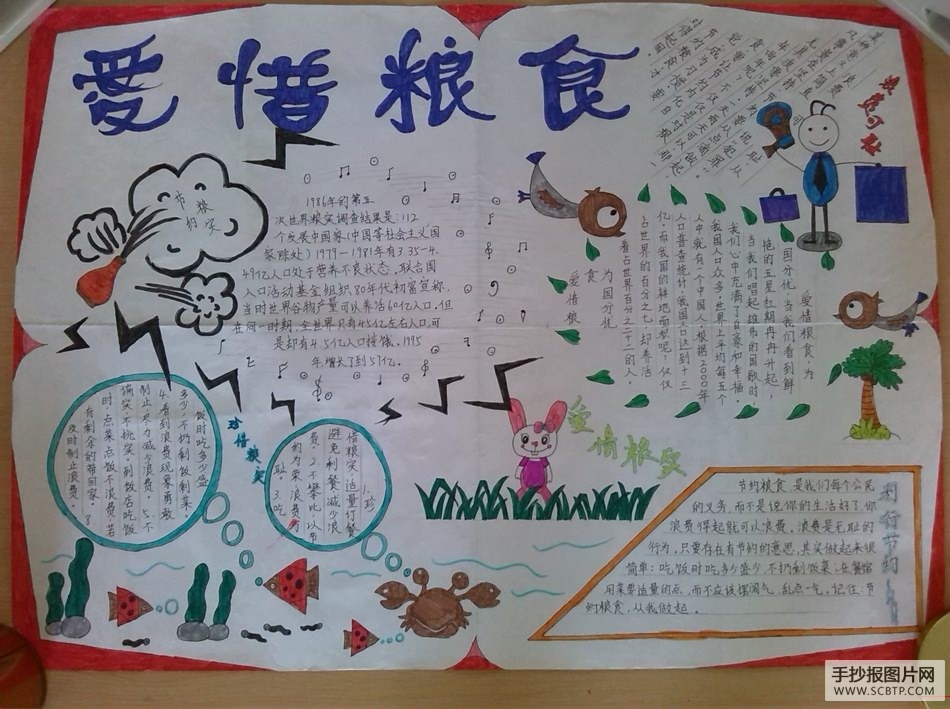 爱惜粮食
浪费可耻
节粮
1986年的第五
次世界粮食调查结果是:112
个发展中国家(中国等社会主义国
家除处)1979—1981年有3.35-4.
49亿人口处于营养不良状态,联合国
人口活动基金组织80年代初宣称,
当时世界谷物产量可以养活60亿人口,但
在同一时期,全世界只有45亿左右人口,可
是却有4.5亿人口挨饿。1995
年增长了到57亿。
爱惜粮食,为
国分忧。当我们看到鲜
艳的五星红旗冉冉升起,
当我们唱起雄伟的国歌时
我们心中充满了自豪和幸福。
我国人口众多,世界上平均每五个
人中就有一个中国人。根据2000年
人口普查统计,我国人口达到十三
亿,而我国的耕地面积呢?仅仅
占世界的百分之七,却养活
着占世界百分之二十二的人。
为国分忧
食
爱惜粮
爱惜粮食
珍惜粮食
1.珍
惜粮食,适量订餐
避免剩餐减少浪
费。2.不攀比,以节
约为荣,浪费为
耻。3.吃
饭时吃多少盛
多少,不扔剩饭剩菜
4.看到浪费现象勇敢
制止,尽力减少浪费。5.不
偏食,不挑食。到饭店吃饭
时,点菜点饭不浪费,若
有剩余的带回家。
及时制止浪费。
厉行节约
节约粮食,是我们每个公民
的义务,而不是说你的生活好了,你
浪费得起就可以浪费。浪费是无耻的
行为,只要存在有节约的意思,其实做起来很
简单:吃饭时吃多少盛少,不扔剩饭菜,在餐馆
用菜要适量的点,而不应该摆阔气,乱点一气。记住:节
约粮食,从我做起。
手抄报图片网
WWW.SCBTP.COM